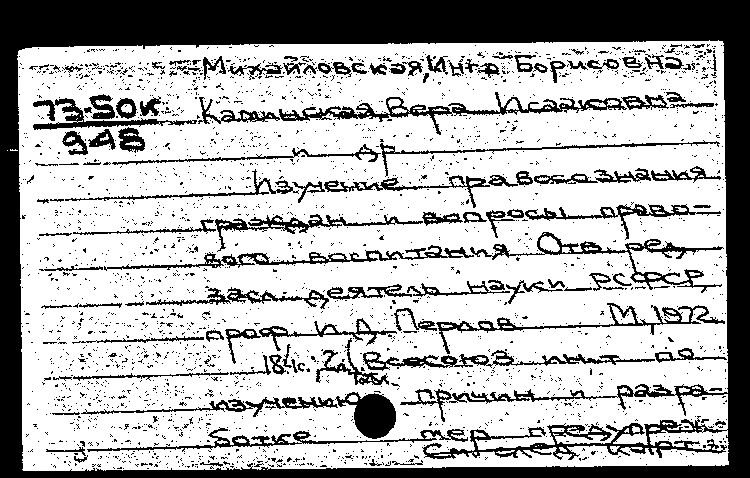 Михайловская, Инга Борисовна.
73-50к
948
Каминская, Вера Исааковна
и др.
Изучение правосознания
граждан и вопросы право-
вого воспитания. Отв. ред.
засл. деятель науки РСФСР,
проф. И. Д. Перлов. М., 1972.
184с.; 2л. табл. (Всесоюз. ин-т по
изучению причин и разра-
ботке мер предупреж-
См. след. карт.